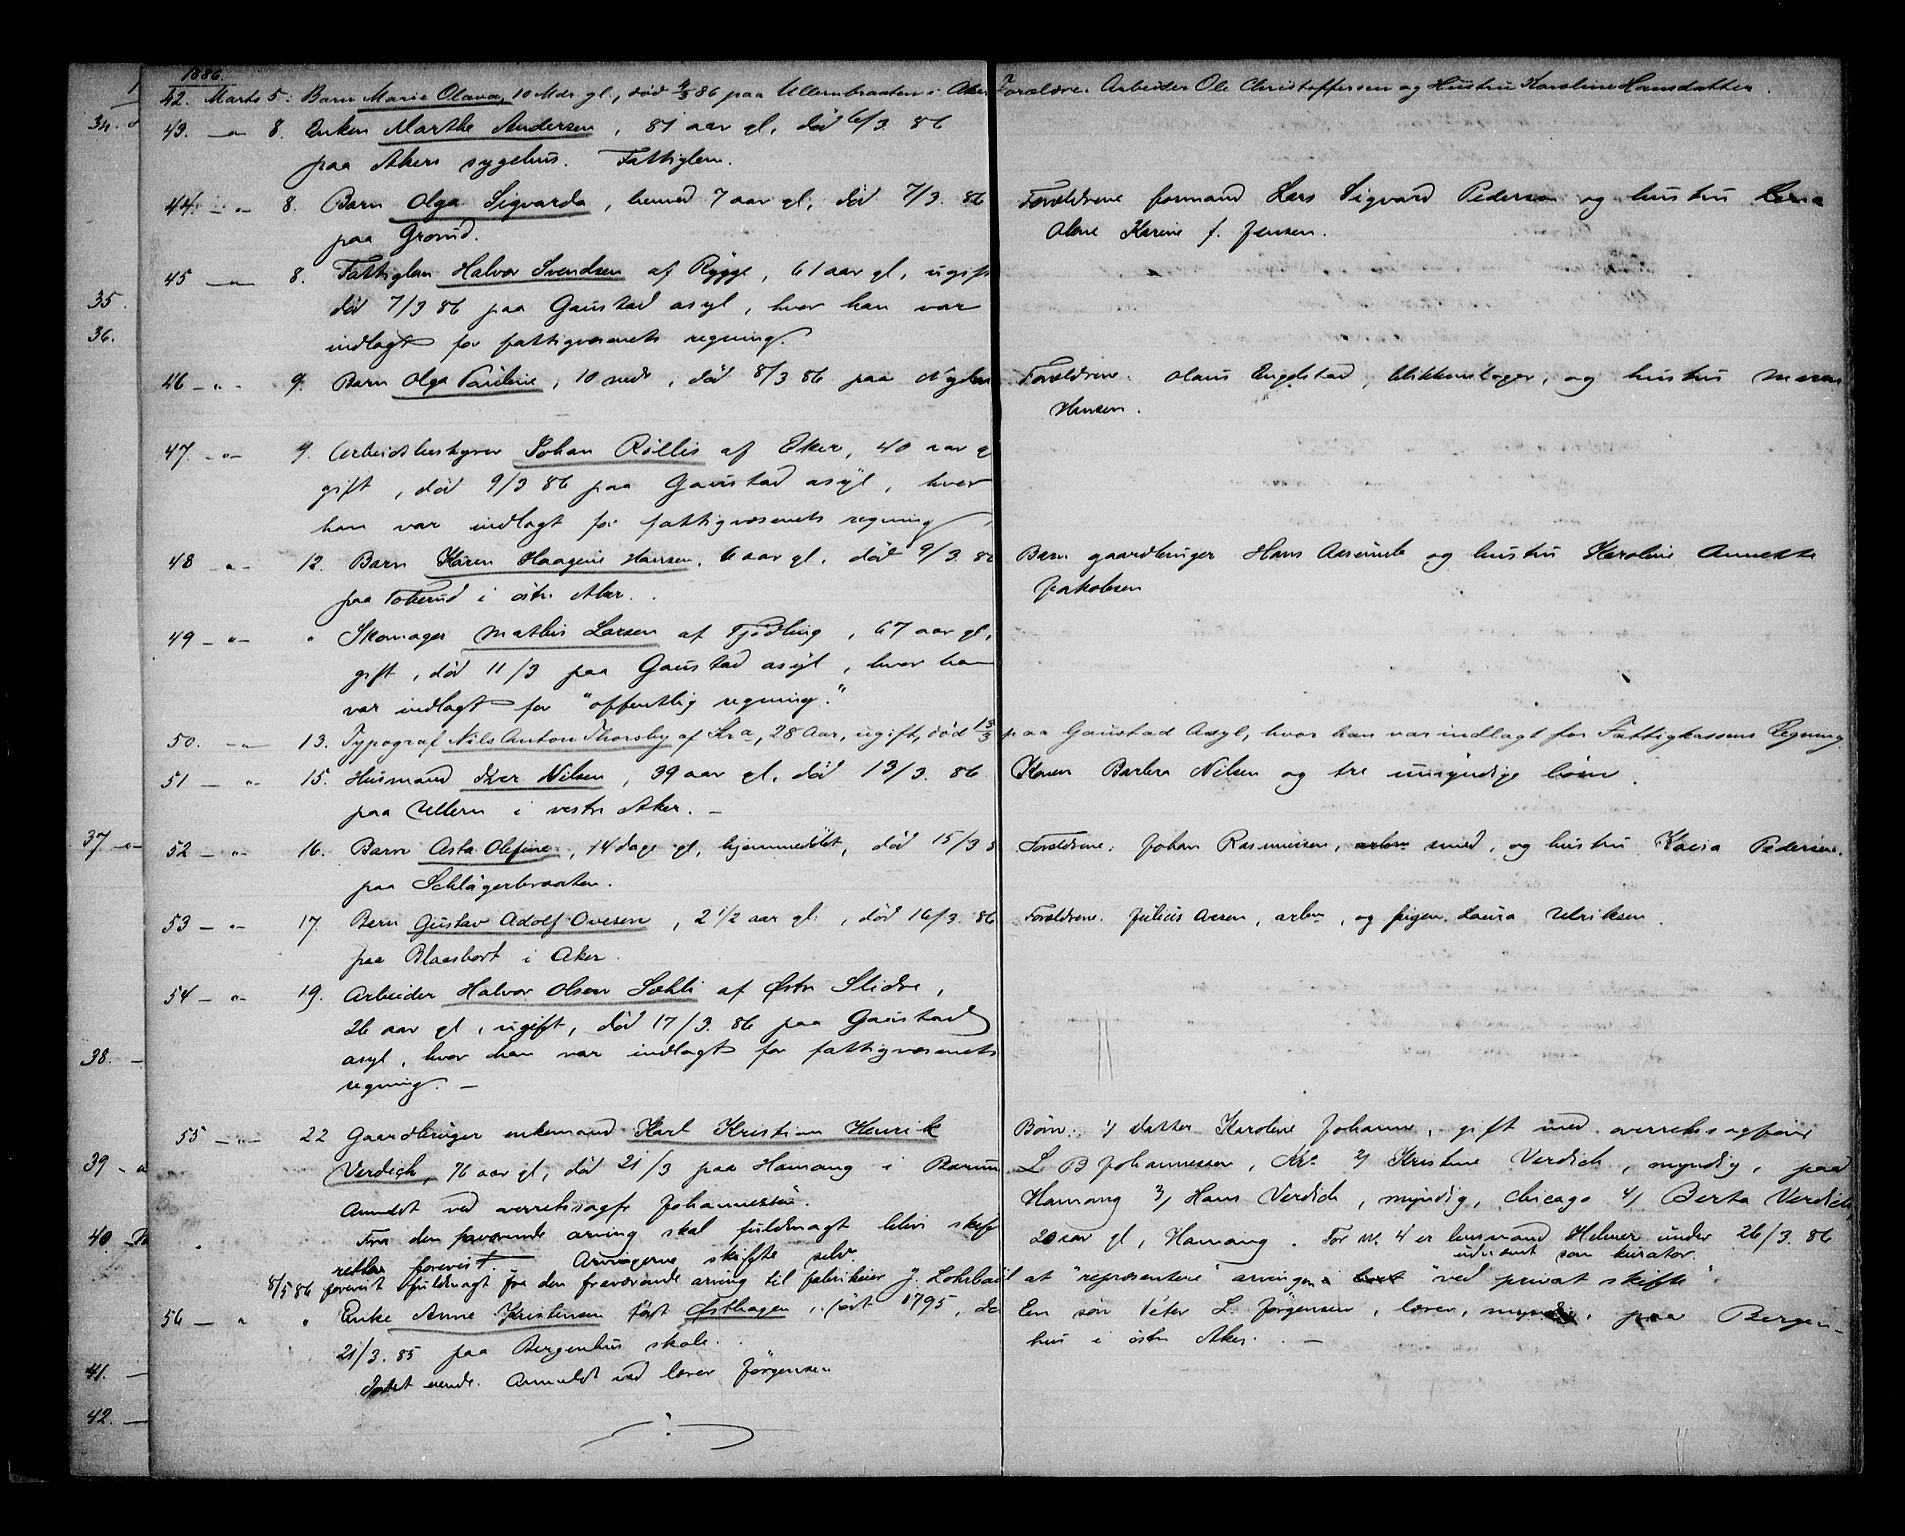 1886.
42. Marts 5. Barn Marie Olava, 10 Mdr. gl., død 4/3 86 paa Ullernbraaten i Aker Forældre: Arbeider Ole Christoffersen og Hustru Karoline Hansdatter.
34.
43. — " — 8. Enken Marthe Andersen, 81 aar gl, død 6/3. 86
paa Akers sygehus. Fattiglem.
44. — " — 8. Barn Olga Sigvarda, henved 7 aar gl, død 7/3. 86 Forældrene formand Lars Sigvard Pedersen og hustru
paa Grorud. Olene Karine f. Jensen.
45 — " — 8. Fattiglem Halvor Svendsen af Rygge, 61 aar gl, ugift
35. død 7/3 86 paa Gaustad asyl, hvor han var
36. indlagt for fattigvæsenets regning.
46 — " — 9. Barn Olga Pauline, 10 mdr, død 8/3 86 paa Forældrene: Olaus Engelstad, blikkenslager, og hustru Maren
Hansen.
47. — " — 9. Arbeidsbestyrer Johan Röllis af Eker, 40 aar g
gift, død 9/3 86 paa Gaustad asyl, hvor
han var indlagt for fattigvæsenets regning
48 — " — 12. Barn Karen Haagine Hansen, 6 aar gl, død 9/3. 86 Barn gaardbruger Hans og hustru Karoline Annette
paa i østre Aker. Jakobsen
49 — " — " Skomager Mathis Larsen af Tjödling, 67 aar gl,
gift, død 11/3 paa Gaustad asyl, hvor han
var indlagt for "offentlig regning."
50. — " — 13. Typograf Nils Anton Thorsby af Kra, 28 Aar, ugift, død 13/3 paa Gaustad Asyl, hvor han var indlagt for Fattigkassens Regning.
51 — " — 15. Husmand Iver Nilsen, 39 aar gl, død 13/3. 86 Konen Barbra Nilsen og tre umyndige börn.
paa Ullern i vestre Aker. —
37 — " —
52 — " — 16. Barn Asta Olefine, 14 dage gl, hjemmedöbt, død 15/3 8 Forældrene: Johan Rasmussen, smed, og hustru Pedersen.
paa Schlägerbraaten.
53 — " — 17. Barn Gustav Adolf Ovesen, 2 1/2 aar gl, død 16/3 86 Forældrene: Julius Ovesen, arbm, og pigen Laura Ulriksen.
paa Blaasbort i Aker.
54 — " — 19. Arbeider Halvor Olsen Sæhli af Østre Slidre,
26 aar gl, ugift, død 17/3. 86 paa Gaustad
38. — asyl, hvor han var indlagt for fattigvæsenets
regning. —
55 — " — 22 Gaardbruger enkemand Karl Kristian Henrik Börn: 1/ datter Karoline Johanne, gift med overretssagförer
39 — " Verdich, 76 aar gl, död 21/3 paa Hamang i Bærum L B Johannessen, Kra 2/ Kristine Verdich, myndig, paa
Anmeldt ved overretssagfr Johannessen. Hamang 3/ Hans Verdich, myndig, Chicago 4/ Berta Verdich,
40. Fra den fraværende arving skal fuldmagt blive skifte 20 aar gl, Hamang. For nr. 4 er lensmand Helmer under 26/3. 86
retten forevist. Arvingerne skifte selv. udnævnt som kurator.
8/5 86 forevist fuldmagt fra den fraværende arving til fabrikeier J. Lohrbach at "repræsentere" arvingen "ved privat skifte".
56 — " — " Enke Anne Kristensen født Østhagen, født 1795, dö En sön Peter L. Jörgensen, lærer, myndig, paa Bergen-
21/3. 85 paa Bergenhus skole. hus i östre Aker. —
eiende. Anmeldt ved lærer Jörgensen
41. —
42. —